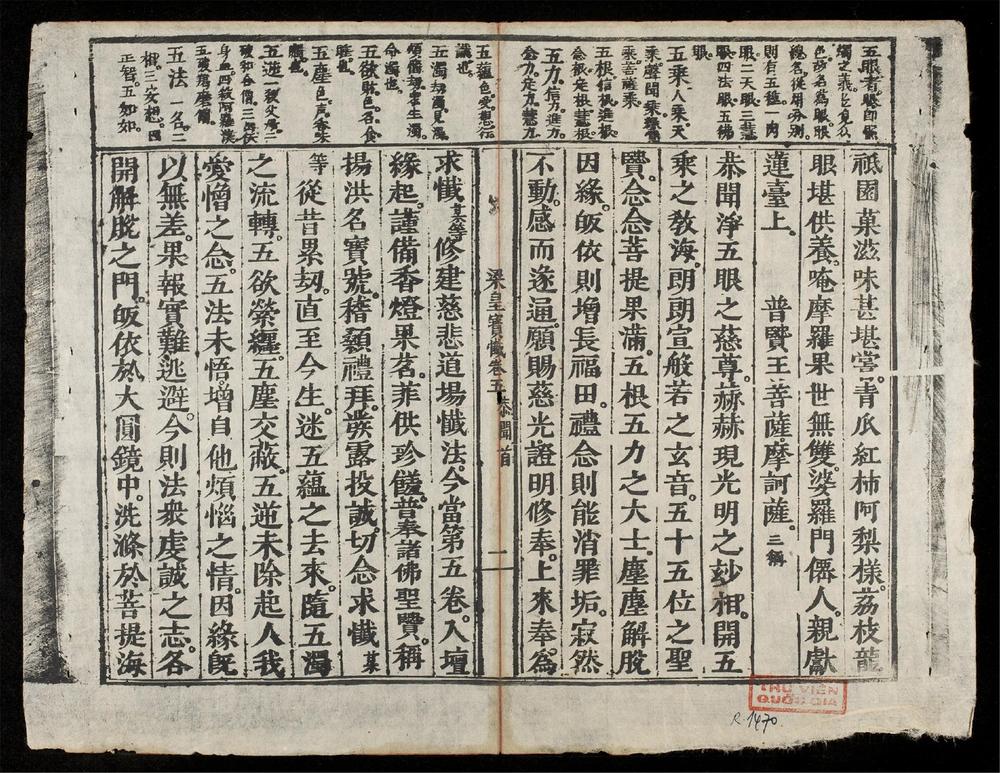 五眼者眼即照
燭之義乞見衆
色故名為眼眼
總名從用分別
則有五種一肉
眼二天眼三慧
眼四法眼五佛
眼
五乘人乘天
乘聲聞乘縁覺
乘菩薩乘
五根信根進根
念根定根慧根
五力信力進力
念力定力慧力
祗園菓滋味甚堪嘗青瓜紅柿阿梨樣荔枝龍
眼堪供養唵摩羅果世無雙婆羅門僊人親獻
蓮臺上 普賢王菩薩摩訶薩三稱
恭聞淨五眼之慈尊赫赫現光明之玅相開五
乘之敎海朗朗宣般若之玄音五十五位之聖
賢念念菩提果滿五根五力之大士塵塵解脫
因緣皈依則增長福田禮念則能消罪垢寂然
不動感而遂通願賜慈光證明修奉上來奉為
梁皇寶懺卷五 恭聞首 二
五蘊色受想行
識也
五濁劫濁見濁
煩惱濁衆生濁
命濁也
五欲財色名食
睡也
五塵色聲香味
觸也
五逆一殺父母二
破和合僧三出佛
身血四殺阿羅漢
五破羯磨僧
五法一名二
相三妄想四
正智五如如
求懺某等修建慈悲道場懺法今當第五卷入壇
緣起謹備香燈果茗菲供珍饈普奉諸佛聖賢稱
揚洪名寶號稽顙禮拜發露投誠切念求懺某
等從昔累劫直至今生迷五蘊之去來隨五濁
之流轉五欲縈纏五塵交蔽五逆未除起人我
愛憎之念五法未悟增自他煩惱之情因緣旣
以無差果報實難逃避今則法衆虔誠之志各
開解脫之門皈依於大圓鏡中洗滌於菩提海
THƯ VIỆN
QUỐC GIA
R.1470